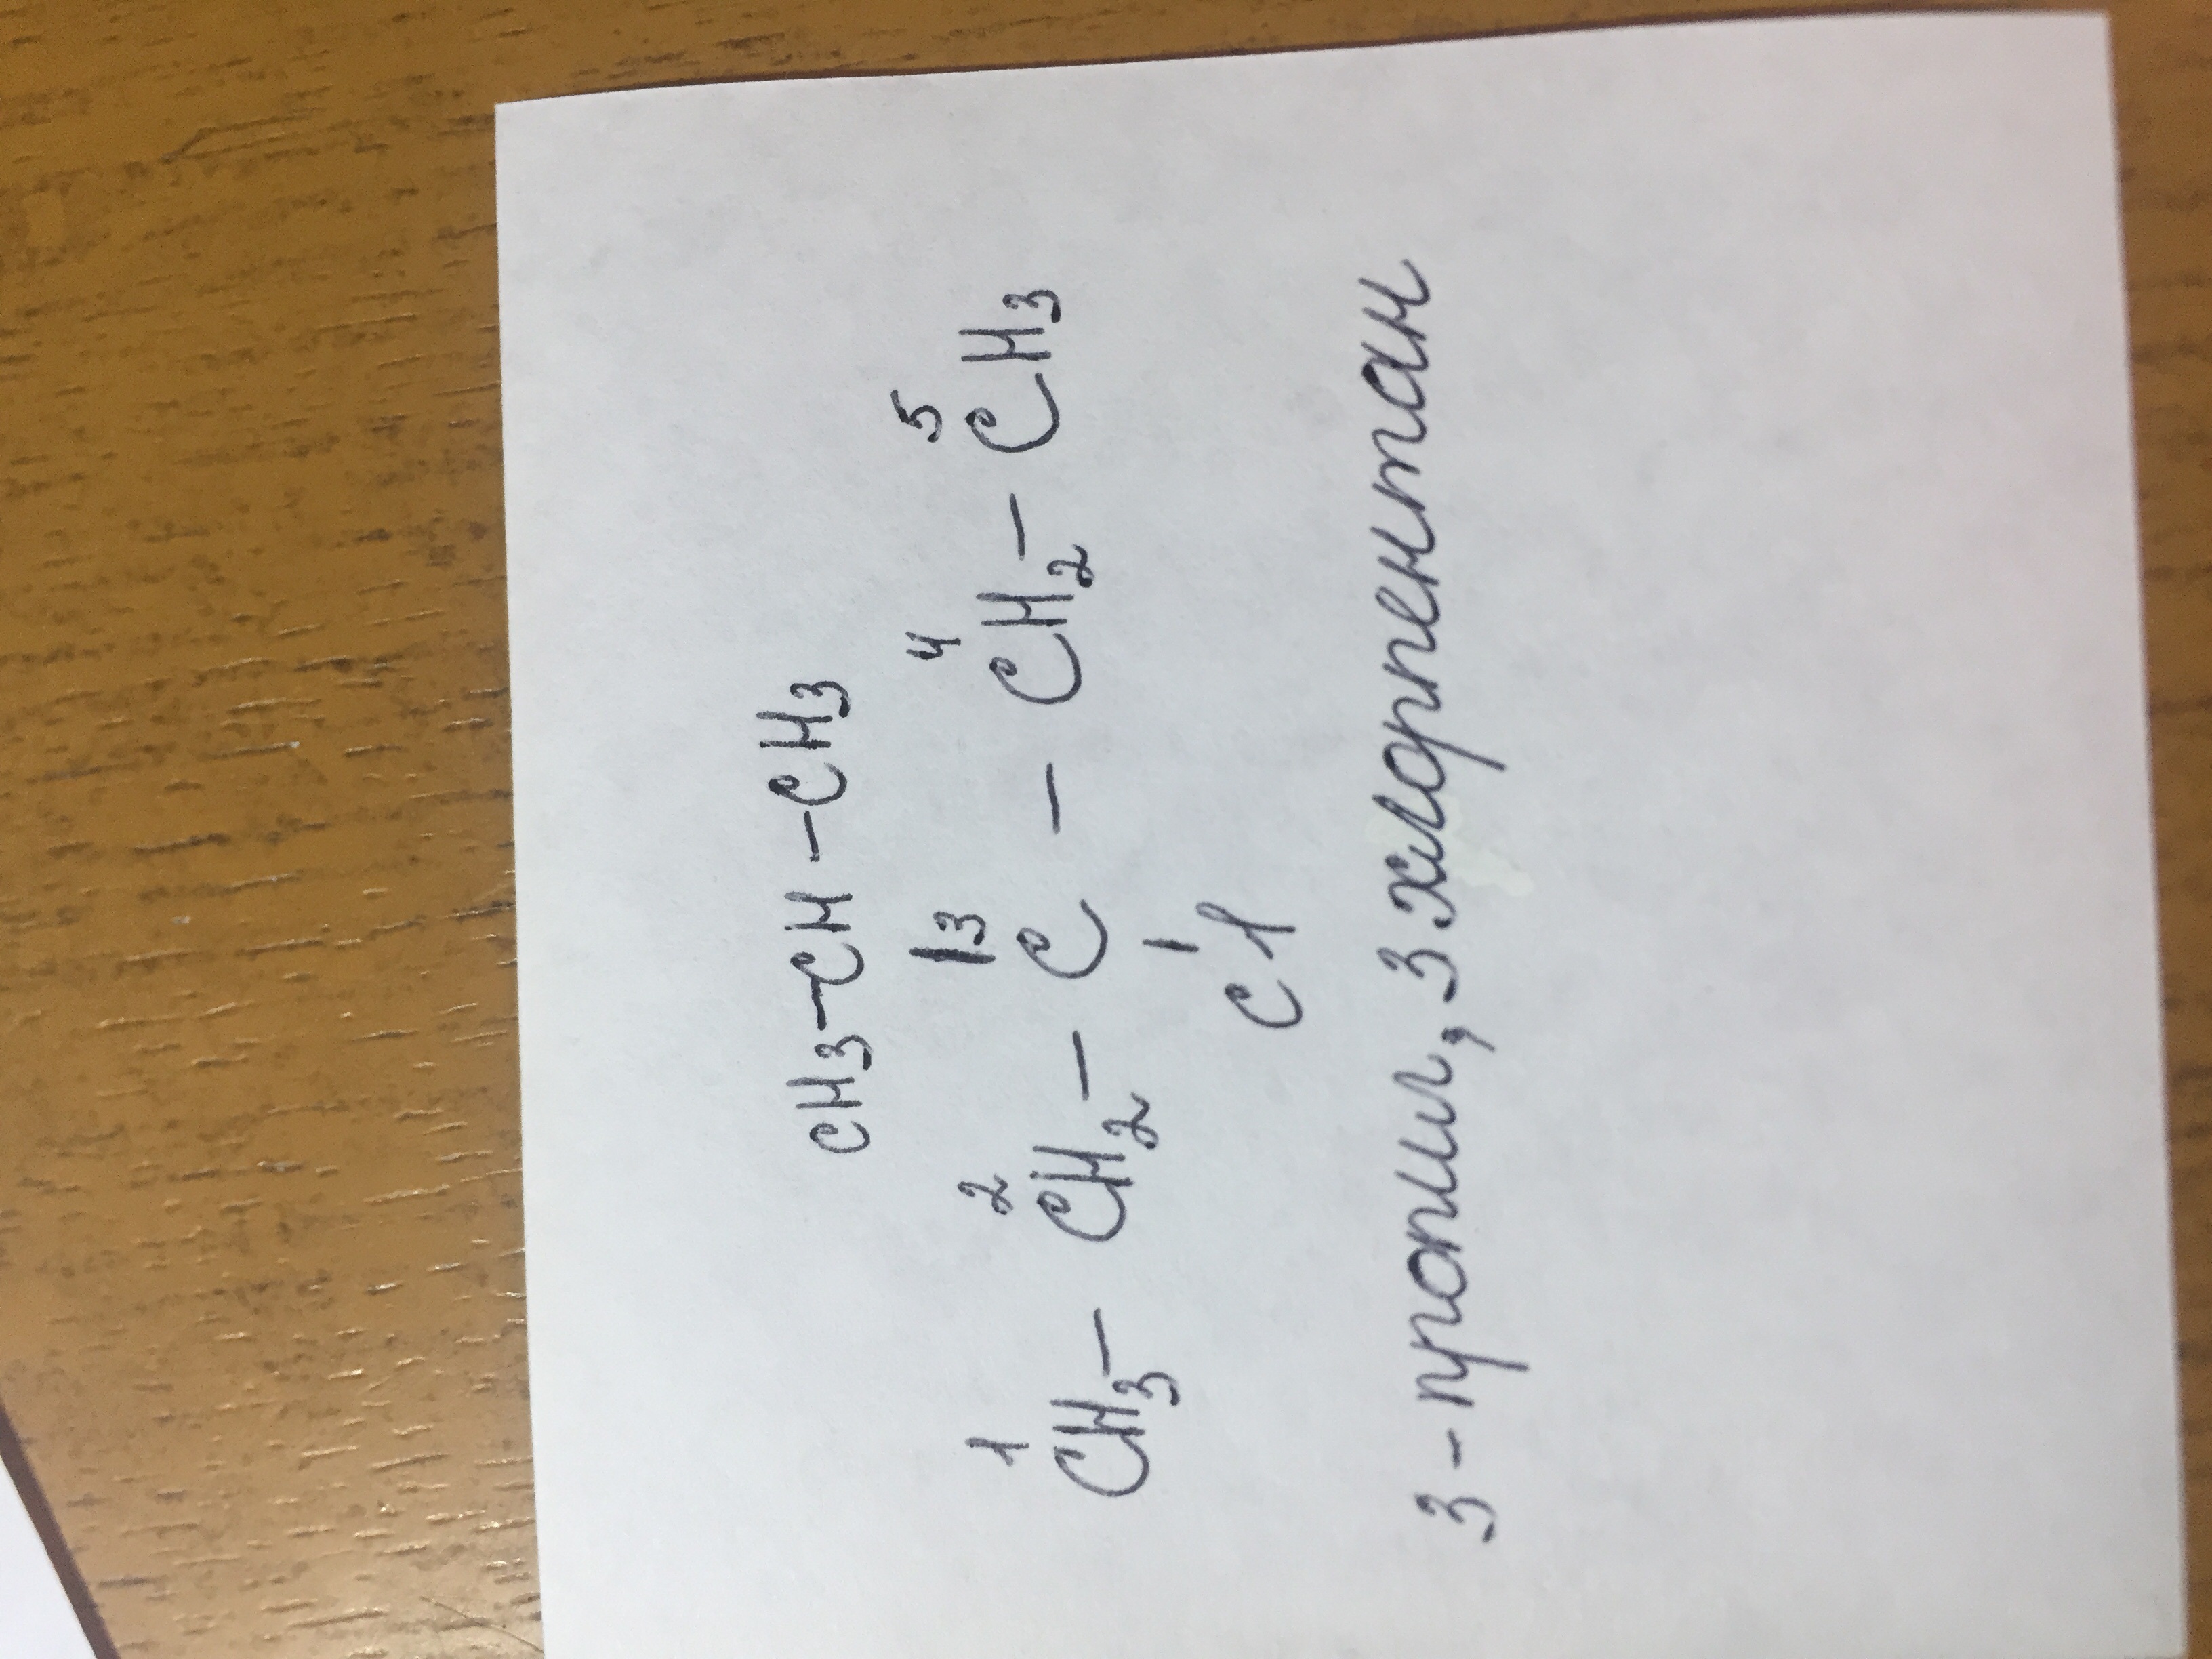 CH3-CH-CH3
1 2 |3 4 5
CH3-CH2-C-CH2-CH3
|
Cl
3-пропил, 3 хлорпентан